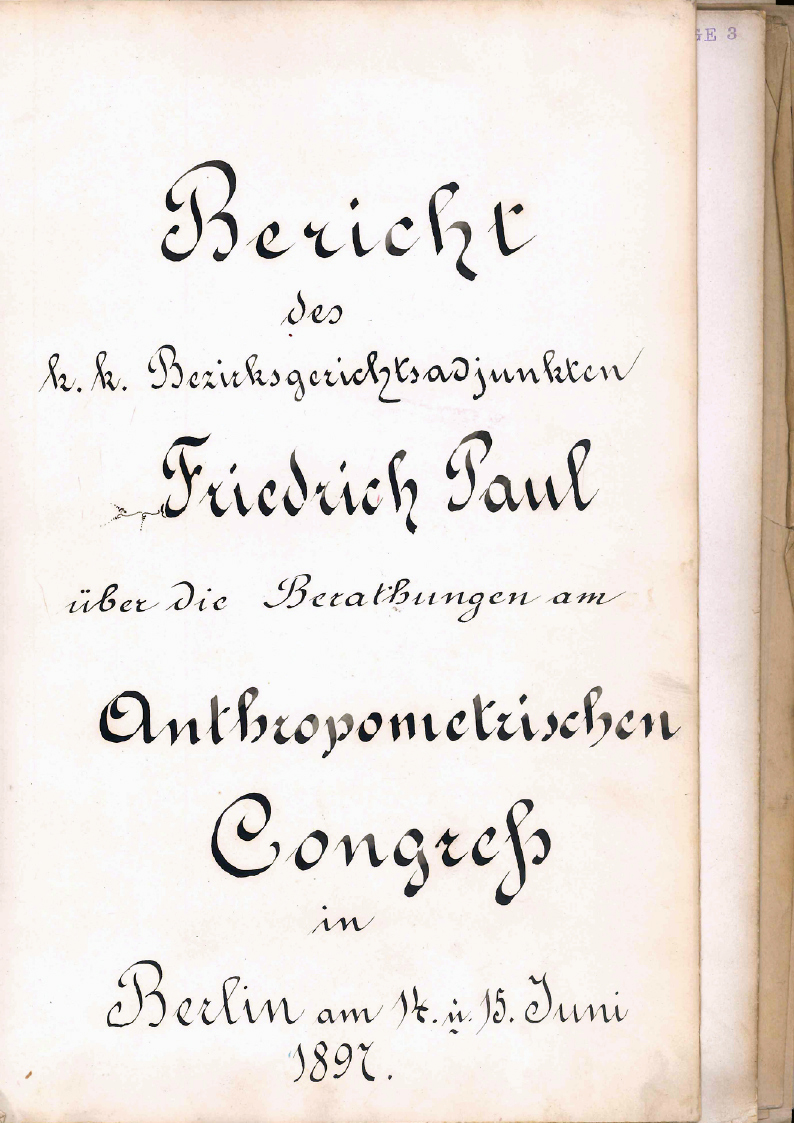 GE 3
Bericht
des
k. k. Bezirksgerichtsadjunkten
Friedrich Paul
über die Berathungen am
Anthropometrischen
Congreß
in
Berlin am 14. u. 15. Juni
1897.